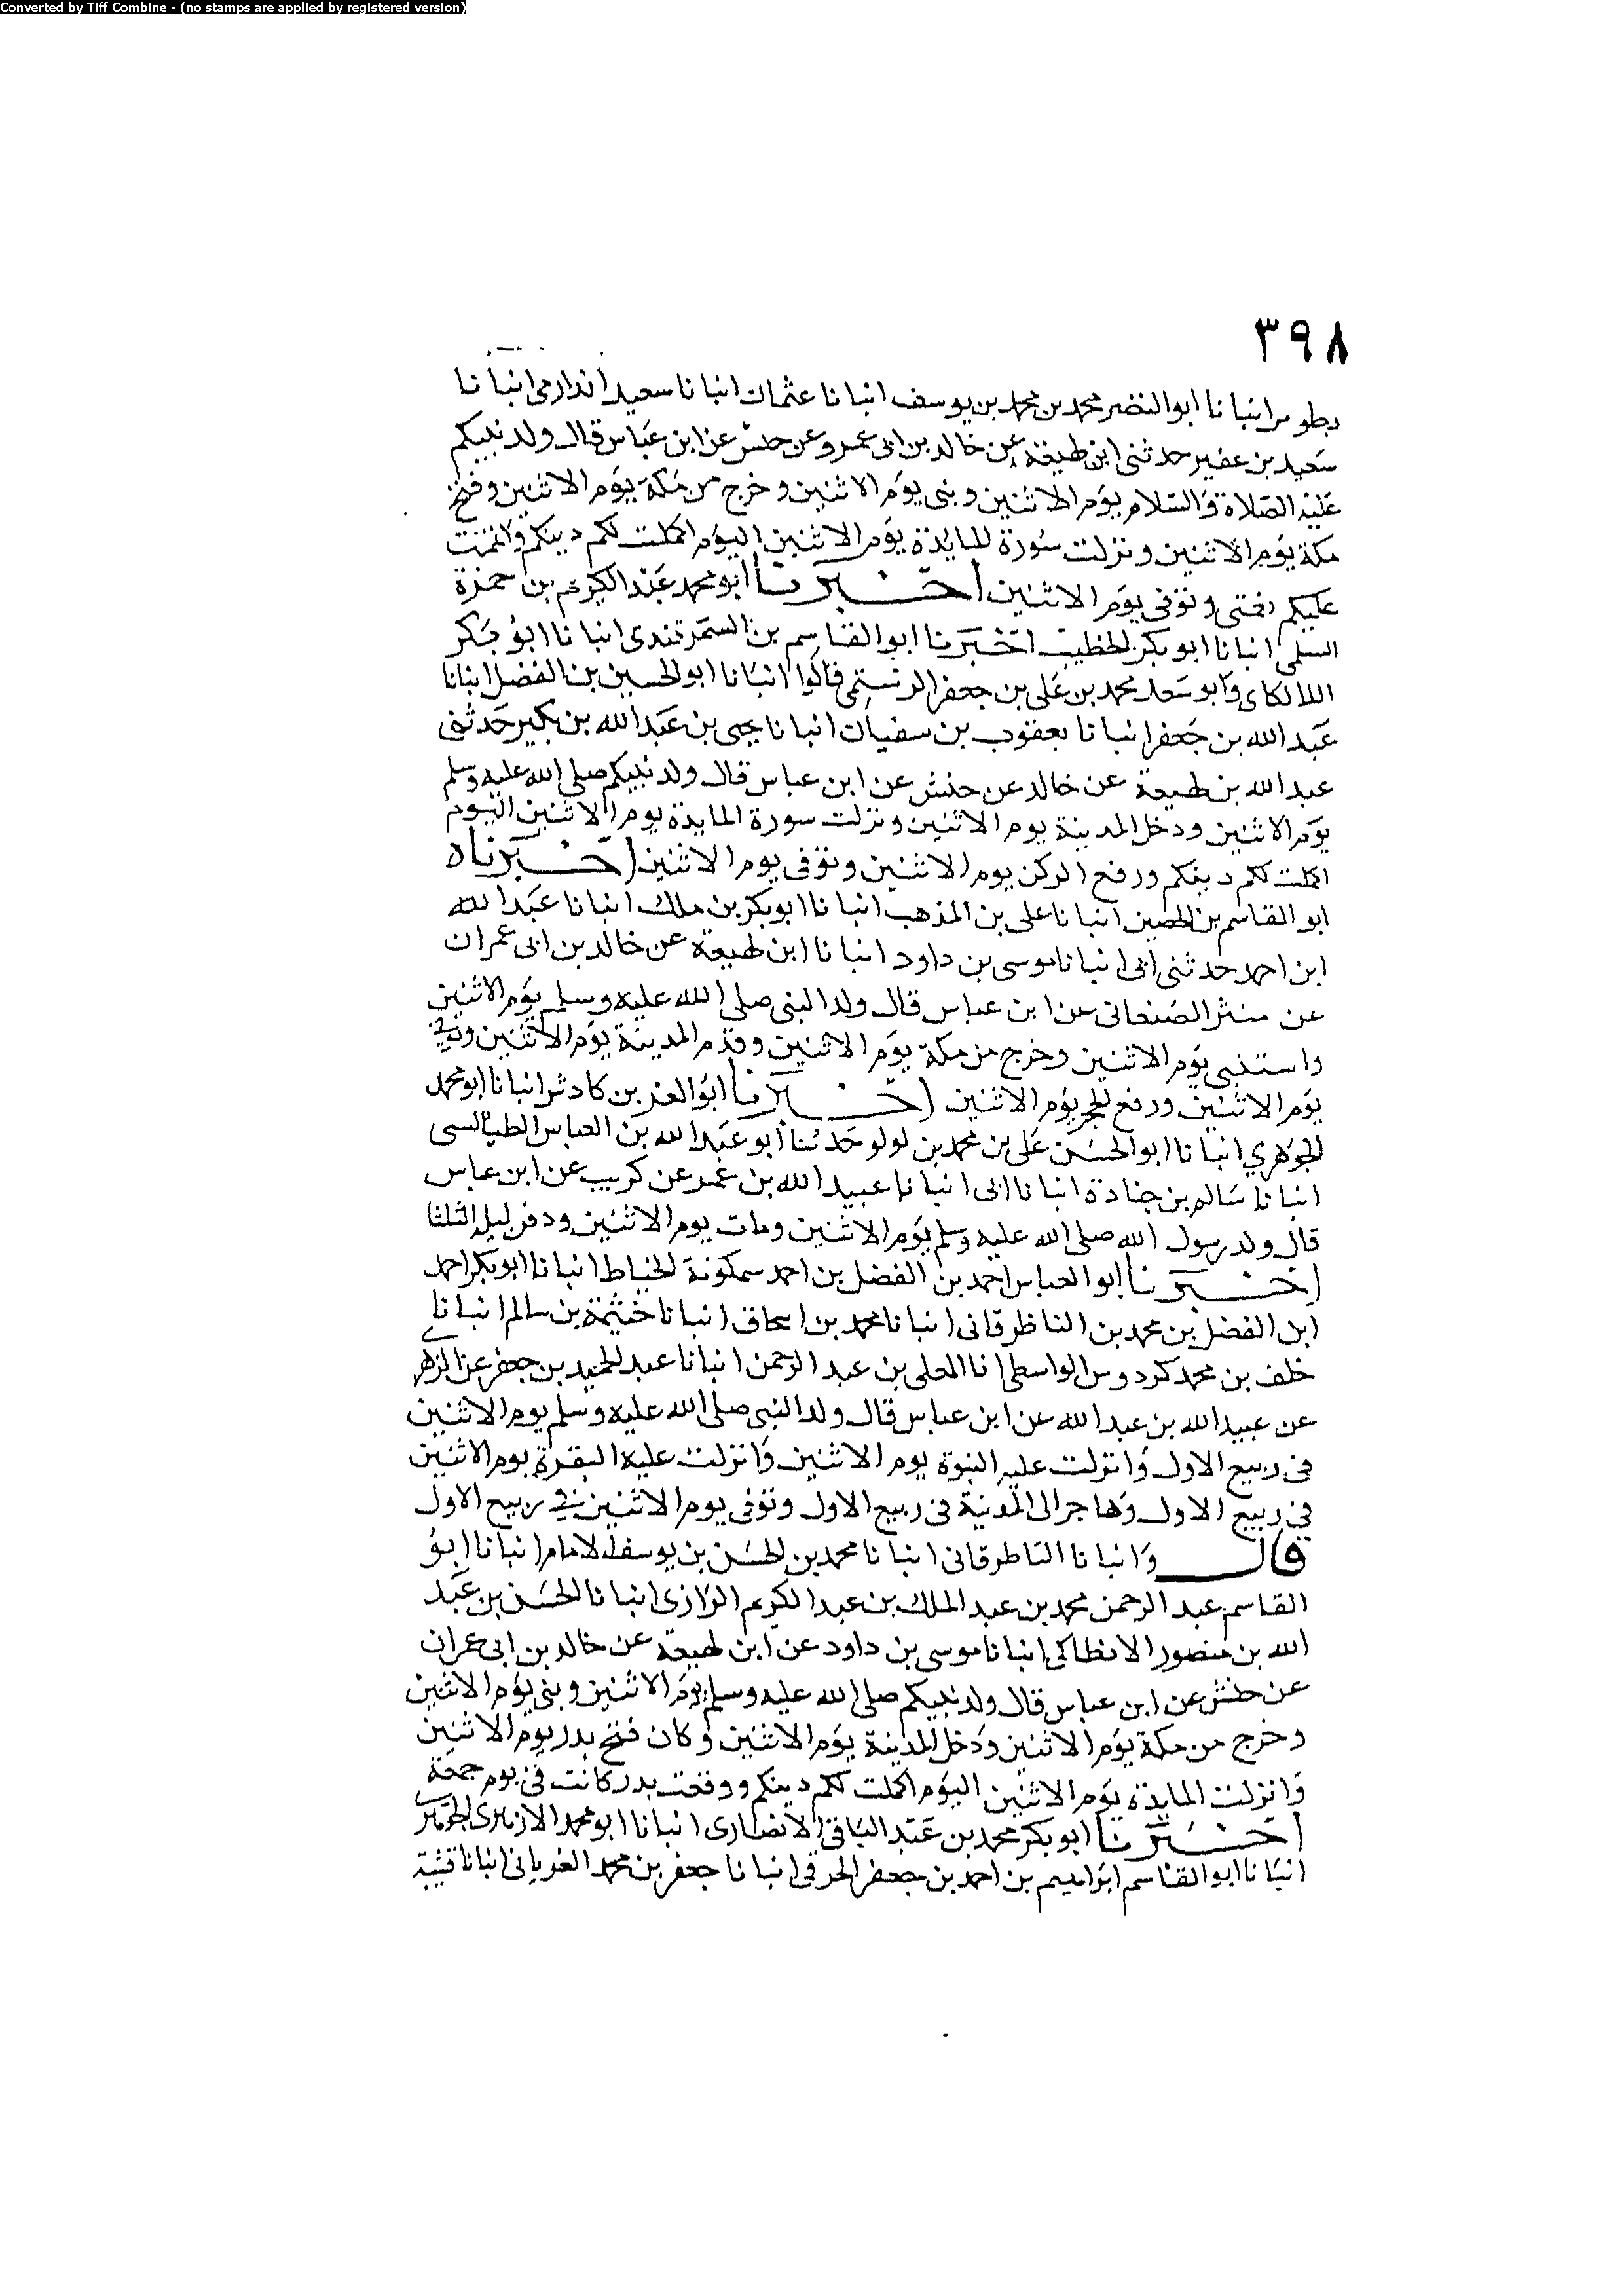 Converted by Tiff Combine - (no stamps are applied by registered version)
٣٩٨
بطوس انبانا ابو النضر محمد بن محمد بن يوسف انبانا عثمان انبانا سعيد الدارمى انبانا
سعيد بن عفير حدثنى ابن لهيعة عن خالد بن ابى عمر وعن حنش عن ابن عباس قال ولد نبيكم
عليه الصلاة والسلام يوم الاثنين ونبى يوم الاثنين وخرج من مكة يوم الاثنين وفتح
مكة يوم الاثنين ونزلت سورة المايدة يوم الاثنين اليوم اكملت لكم دينكم واتممت
عليكم نعمتى وتوفى يوم الاثنين اخبرنا ابو محمد عبد الكريم بن حمزة
السلمى انبانا ابو بكر الخطيب اخبرنا ابو القاسم بن السمرقندى انبانا ابو بكر
اللالكاى وابو سعد محمد بن على بن جعفر الرستمى قالوا انبانا ابو الحسين بن الفضل انبانا
عبد الله بن جعفر انبانا يعقوب بن سفيان انبانا يحيى بن عبد الله بن بكير حدثنى
عبد الله بن لهيعة عن خالد عن حنش عن ابن عباس قال ولد نبيكم صلى الله عليه وسلم
يوم الاثنين ودخل المدينة يوم الاثنين ونزلت سورة المايدة يوم الاثنين اليوم
اكملت لكم دينكم ورفع الركن يوم الاثنين وتوفى يوم الاثنين اخبرناه
ابو القاسم بن الحصين انبانا على بن المذهب انبانا ابو بكر بن ملك انبانا عبد الله
ابن احمد حدثنى ابى انبانا موسى بن داود انبانا ابن لهيعة عن خالد بن ابى عمران
عن حنش الصنعانى عن ابن عباس قال ولد النبى صلى الله عليه وسلم يوم الاثنين
واستنبى يوم الاثنين وخرج من مكة يوم الاثنين وقدم المدينة يوم الاثنين وتوفى
يوم الاثنين ورفع الحجر يوم الاثنين اخبرنا ابو العز بن كادش انبانا ابو محمد
الجوهري انبانا ابو الحسن على بن محمد بن لولو حدثنا ابو عبد الله بن العباس الطيالسى
انبانا سالم بن جنادة انبانا ابى انبانا عبيد الله بن عمر عن كريب عن ابن عباس
قال ولد رسول الله صلى الله عليه وسلم يوم الاثنين ومات يوم الاثنين ودفن ليلة الثلثا
اخبرنا ابو العباس احمد بن الفضل بن احمد سمكونة الخياط انبانا ابو بكر احمد
ابن الفضل بن محمد بن الناظرقانى انبانا محمد بن اسحاق انبانا خثيمة بن سالم انبانا
خلف بن محمد كردوس الواسطى انا المعلى بن عبد الرحمن انبانا عبد الحميد بن جعفر عن الزهري
عن عبيد الله بن عبد الله عن ابن عباس قال ولد النبى صلى الله عليه وسلم يوم الاثنين
فى ربيع الاول وانزلت عليه النبوة يوم الاثنين وانزلت عليه البقرة يوم الاثنين
فى ربيع الاول وهاجر الى المدينة فى ربيع الاول وتوفى يوم الاثنين فى ربيع الاول
قال وانبانا الناطرقانى انبانا محمد بن الحسن بن يوسف الامام انبانا ابو
القاسم عبد الرحمن محمد بن عبد الملك بن عبد الكريم الرازى انبانا الحسن بن عبد
الله بن منصور الانطاكى انبانا موسى بن داود عن ابن لهيعة عن خالد بن ابى عمران
عن حنش عن ابن عباس قال ولد نبيكم صلى الله عليه وسلم يوم الاثنين ونبى يوم الاثنين
وخرج من مكة يوم الاثنين ودخل المدينة يوم الاثنين وكان فتح بدر يوم الاثنين
وانزلت المايدة يوم الاثنين اليوم اكملت لكم دينكم ووقعت بدر كانت فى يوم جمعة
اخبرنا ابو بكر محمد بن عبد الباقى الانصارى انبانا ابو محمد
انبانا ابو القاسم ابراهيم بن احمد بن جعفر الخرقى انبانا جعفر بن محمد الفريانى انبانا قتيبة